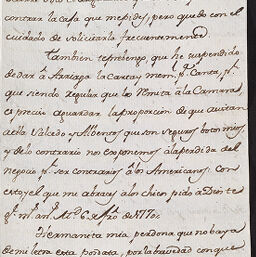 contrar la casa que me pides, pero quedo con el
cuidado de solicitarla frecuentemente
Tambien te prebengo, que he suspendido
de dar a Arriaga la Carta y mem.l p.a Canta, p.r
que siendo regular que lo remita à la Camara,
es preciso aguardar la proporcion de que asistan
a ella Salcedo y que son seguros boton mios,
y de lo contrario nos exponemos à la perdida del
negocio p.r ser contrarios à los Americanos con
esto, y el que me abraces a los chicos pido à Dios te
g.e m.s an.s M.d 6 de de 1770.
Hermanita mia perdona que no baya
de mi letra esta posdata, por la brevedad con que